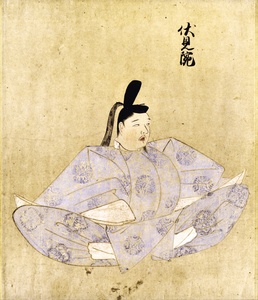 伏見院